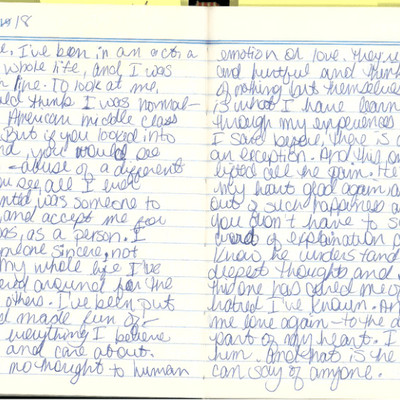 18
I've been in an act, a
whole life, and I was
line. To look at me,
ld think I was normal-
American middle class
But if you looked into
nd, you would see
- abuse of a different
you see, all I ever
nted was someone to
and accept me for
as, as a person. I
meone sincere, not
my whole life I've
around for the
others. I've been put
d made fun of -
everything I believe
and care about.
no thought to human
emotion or love. They're
and hurtful and think
of nothing but themselves
is what I have learn
through my experiences
I said before, there is
an exception. And this on
lifted all the pain. He
my heart glad again a
out of such happiness a
you don't have to s
word of explanation
know he understand
deepest thoughts and
this one has cured me of
hatred I've known. An
me love again - to the d
part of my heart. I
him. And that is the
can say of anyone.